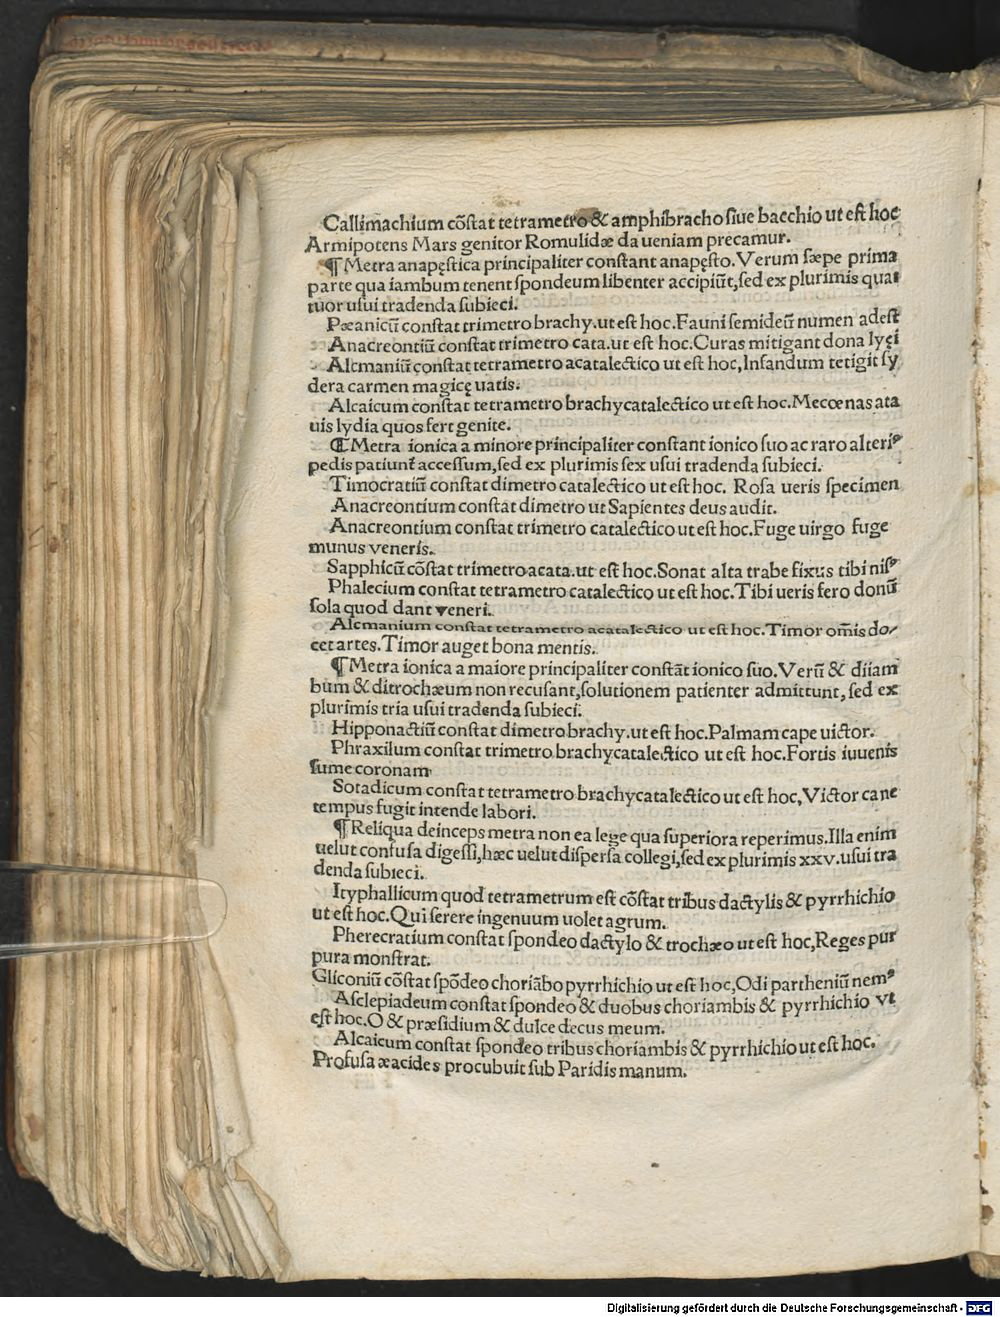 Callimachium cõstat tetrametro & amphibracho siue bacchio ut est hoc
Armipotens Mars genitor Romulidæ da ueniam precamur.
¶ Metra anapęstica principaliter constant anapęsto. Verum sæpe prima
parte qua iambum tenent spondeum libenter accipiũt, sed ex plurimis quat
tuor usui tradenda subieci.
Pæanicũ constat trimetro brachy. ut est hoc. Fauni semideũ numen adest
Anacreontiũ constat trimetro cata. ut est hoc. Curas mitigant dona lyęi
Alcmaniũ constat tetrametro acatalectico ut est hoc, Infandum tetigit sy
dera carmen magicę uatis.
Alcaicum constat tetrametro brachycatalectico ut est hoc. Mecœnas ata
uis lydia quos fert genite.
¶ Metra ionica a minore principaliter constant ionico suo ac raro alteriꝰ
pedis patiunt̃ accessum, sed ex plurimis sex usui tradenda subieci.
Timocratiũ constat dimetro catalectico ut est hoc. Rosa ueris specimen
Anacreontium constat dimetro ut Sapientes deus audit.
Anacreontium constat trimetro catalectico ut est hoc. Fuge uirgo fuge
munus veneris.
Sapphicũ cõstat trimetro acata. ut est hoc. Sonat alta trabe fixus tibi nisꝰ
Phalecium constat tetrametro catalectico ut est hoc. Tibi ueris fero donũ
sola quod dant veneri.
Alcmanium constat tetrametro acatalectico ut est hoc. Timor om̃is do/
cet artes. Timor auget bona mentis.
¶ Metra ionica a maiore principaliter constãt ionico suo. Verũ & diiam
bum & ditrochæum non recusant, solutionem patienter admittunt, sed ex
plurimis tria usui tradenda subieci.
Hipponactiũ constat dimetro brachy. ut est hoc. Palmam cape uictor.
Phraxilum constat trimetro brachycatalectico ut est hoc. Fortis iuuenis
sume coronam
Sotadicum constat tetrametro brachycatalectico ut est hoc, Victor cane
tempus fugit intende labori.
¶ Reliqua deinceps metra non ea lege qua superiora reperimus. Illa enim
uelut confusa digessi, hæc uelut dispersa collegi, sed ex plurimis xxv. usui tra
denda subieci.
Ityphallicum quod tetrametrum est cõstat tribus dactylis & pyrrhichio
ut est hoc. Qui serere ingenuum uolet agrum.
Pherecratium constat spondeo dactylo & trochæo ut est hoc, Reges pur
pura monstrat.
Gliconiũ cõstat spõdeo choriãbo pyrrhichio ut est hoc, Odi partheniũ nemꝰ
Asclepiadeum constat spondeo & duobus choriambis & pyrrhichio vt
est hoc. O & præsidium & dulce decus meum.
Alcaicum constat spondeo tribus choriambis & pyrrhichio ut est hoc.
Profusa æacides procubuit sub Paridis manum.
Digitalisierung gefördert durch die Deutsche Forschungsgemeinschaft - DFG